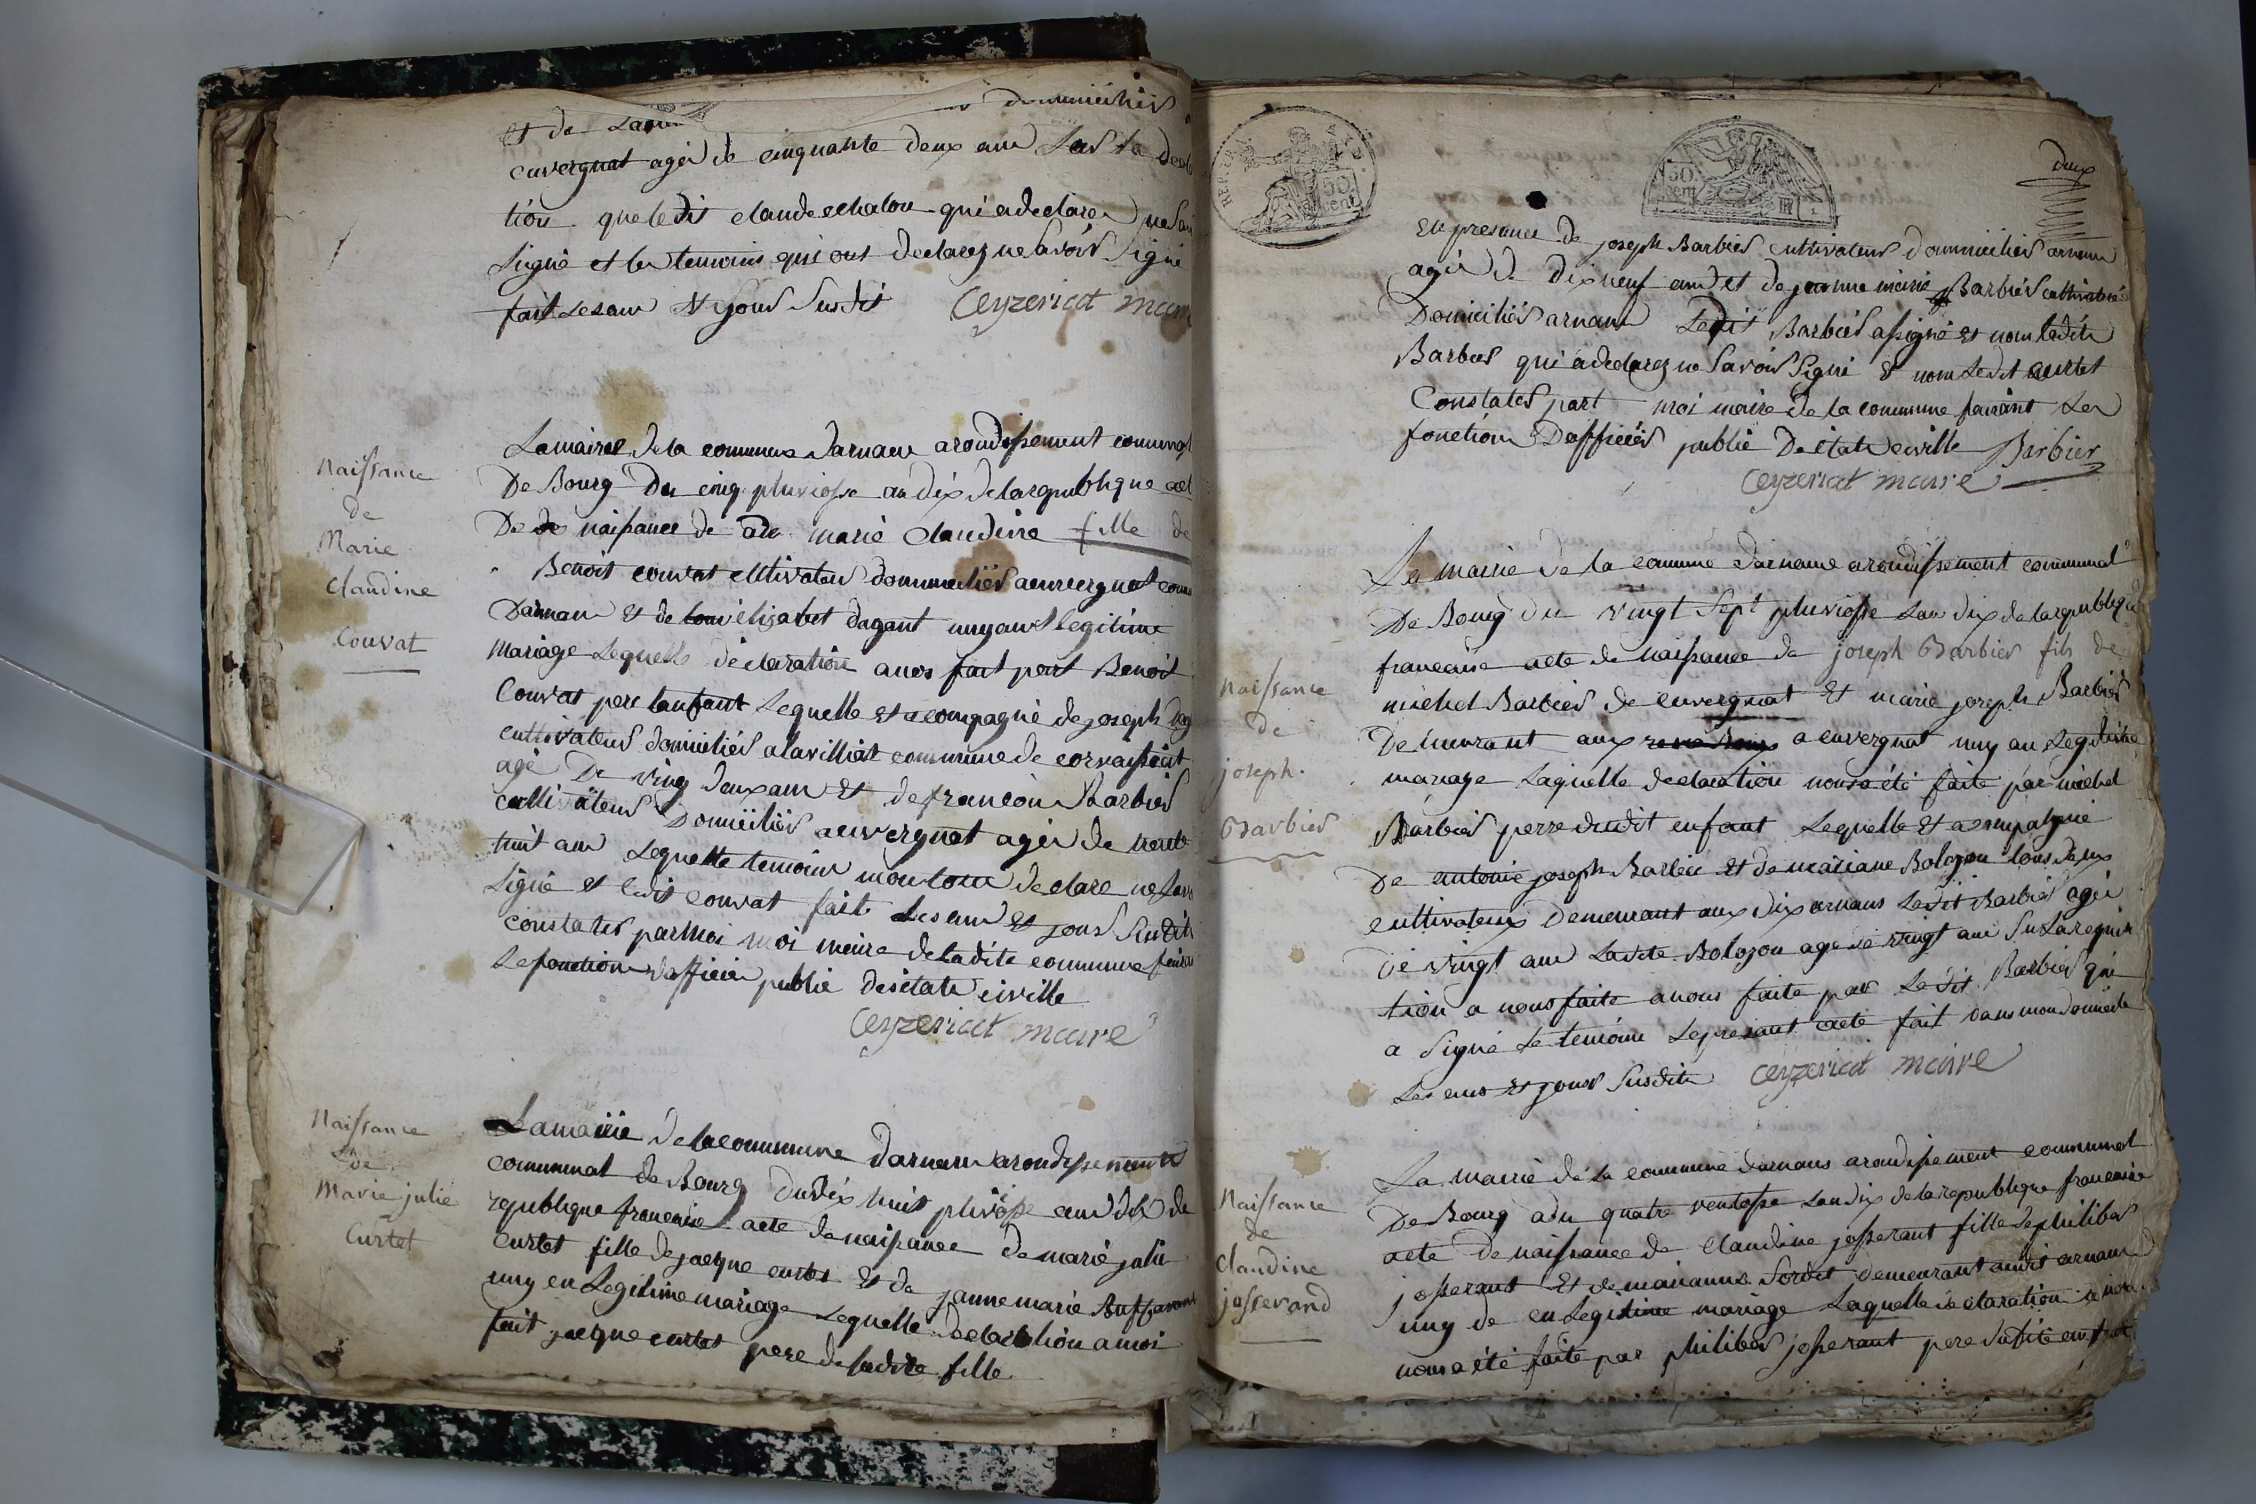 domiciliés
et de
cuvergnat agés de cinquante deux ans Sur la decla
tion que le dit claude echalon qui a declarer ne Sav
Signé et les temoins qui ont declarez ne Savoir Signé
fait Les an et jour Susdit Ceyzeriat maire
Naissance
de
Marie
Claudine
Couvat
La mairie de la commune darnans arondissement communal
De Bourg Du cinq pluviosse an dix de la republique act
De naissance de marie Claudine fille de
Benoit couvat cultivateur dommicilies a cuvergnat comm
Darnans et de elizabet dagant uny en legitime
Mariage Lequelle déclaration anos fait part Benoit
Couvat pere lenfant Lequelle et acompagné de joseph dag
cultivateur domicilies a lavilliat commune de corvaissiat
agé De ving deux ans et de francoi Barbier
cultivateur Domicilies a cuvergnat agés de trente
huit ans Lequelle temoins mon declare ne Savo
Signé et ledit couvat fait Les an et jour Susdit
constater par moi moi maire de ladite commune faisan
Le fonction dofficier public des état civille
Ceyzeriat maire
Naissance
de
Marie julie
Curtet
La mairie de la commune darnans arondissement
communal de Bourg du dix huit pluviose an dix de
republique francaise acte de naissance de marie julie
curtet fille de jacque curtet et de janne marie Buffavant
uny en Legitime mariage Lequelle declaration a moi
fait jacque curtet pere de ladite fille
REP. FRA.
50 cent
50 cent
deux
En presance de joseph Barbier cultivateur dommicilies arnans
agés de dix neuf ans et de jeanne marie Barbier cultivatrice
Domiciliés arnans Ledit Barbier a signé et non ladite
Barbier qui a declarez ne Savoir Signé et non Ledit curtet
Constater part moi maire de la commune faisant Les
fonction Dofficier public De état civille Barbier
Ceyzeriat maire
Naissance
de
joseph
Barbier
La mairie de la commune darnans arondissement communal
De Bourg du vingt Sept pluviosse Lan dix de la republique
francaise acte de naissance de joseph Barbier fils de
michel Barbier de cuvergnat et marie joseph Barbier
Demeurant aux a cuvergnat uny au Legitime
mariage Laquelle declaration nous a été faite par michel
Barbier perre du dit enfant Lequelle et acompagnie
De antoine joseph Barbier et de mariane Bolozon tous deux
cultivateurs Demeurant aux dix arnans Ledit Barbier agés
De vingt ans Ladite Bolozon agés de vingt ans Su La requisi
tion a nous faite a nous faite par Ledit Barbier qui
a Signé Le temoins Le presant acte fait dans mon domicile
Les ans et jour Susdits Ceyzeriat maire
Naissance
de
Claudine
josserand
La mairie de la commune darnans arondissement communal
De Bourg a du quatre ventosse Lan dix de la republique francaise
acte de naissance de Claudine josserant fille de philiber
josserant Et de marianne Sordet demeurant audit arnans
uny de en Legitime mariage Laquelle declaration a nou
nous a été faite par philiber josserant pere dudite enfant